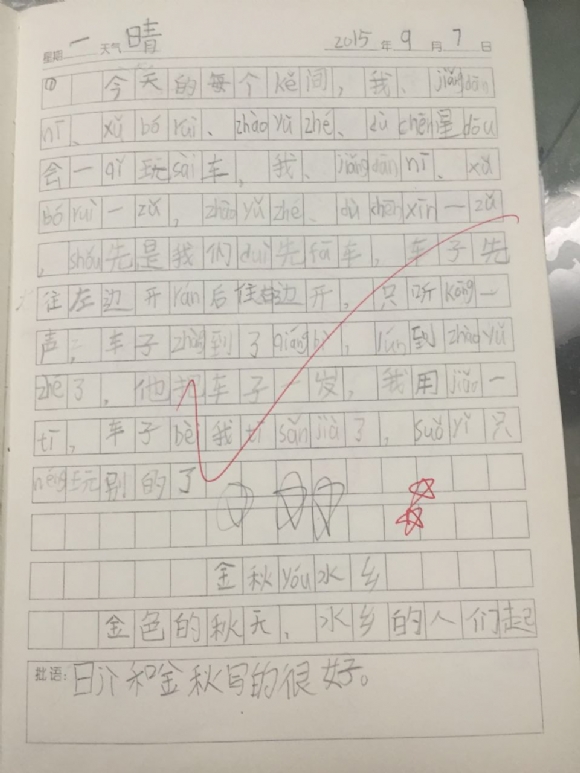 星期 一 天气 晴 2015 年 9 月 7 日
今天的每个kè间,我、jiǎng dān
nī、xǔ bó ruì、zhào yǔ zhé、dù chén 星 dōu
会一qǐ玩sài车,我、jiǎng dān nī、xǔ
bó ruì一zǔ,zhào yǔ zhé、dù chén xīn一zǔ
,shǒu先是我们duì先fā车,车子先
往左边开rán后往右边开,只听kōng一
声,车子zhàng到了qiáng bì,lún到zhào yǔ
zhé了,他把车子一发,我用jiǎo一
tī,车子bèi我tī sǎn jià了,suǒ yǐ只
néng玩别的了
金秋yóu水乡
金色的秋天,水乡的人们起
批语: 日记和金秋写的很好。